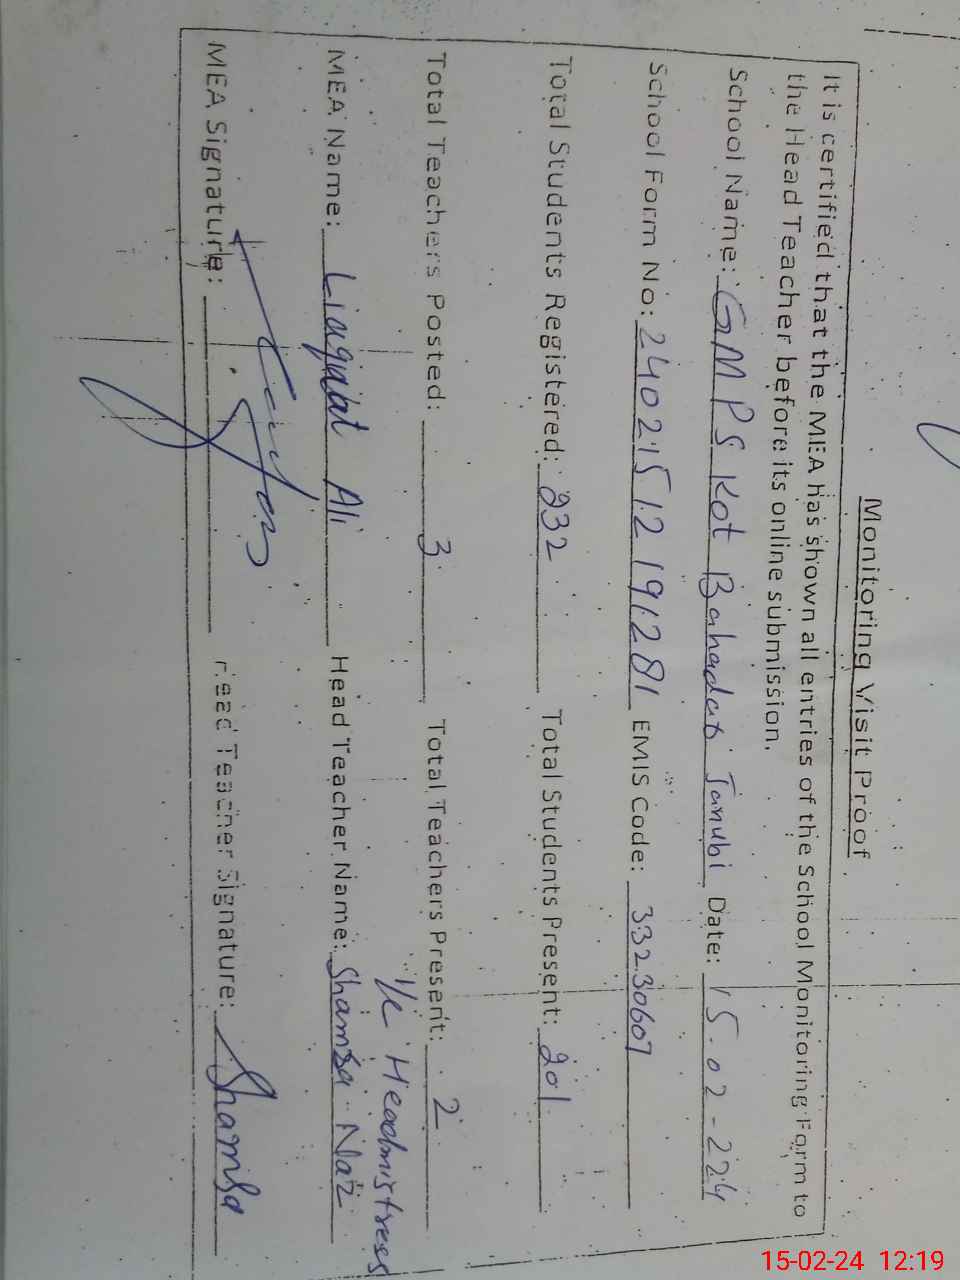 Monitoring Visit Proof
It is certified that the MEA has shown all entries of the School Monitoring Form to
the Head Teacher before its online submission.
School Name: GMPS Kot Bahadar Janubi Date: 15-02-224
School Form No: 24021512191281 EMIS Code: 33230607
Total Students Registered: 232 Total Students Present: 201
Total Teachers Posted: 3 Total Teachers Present: 2
I/c Headmistress
MEA Name: Liaquat Ali Head Teacher Name: Shamsa Naz
MEA Signature: Head Teacher Signature: Shamsa
15-02-24 12:19